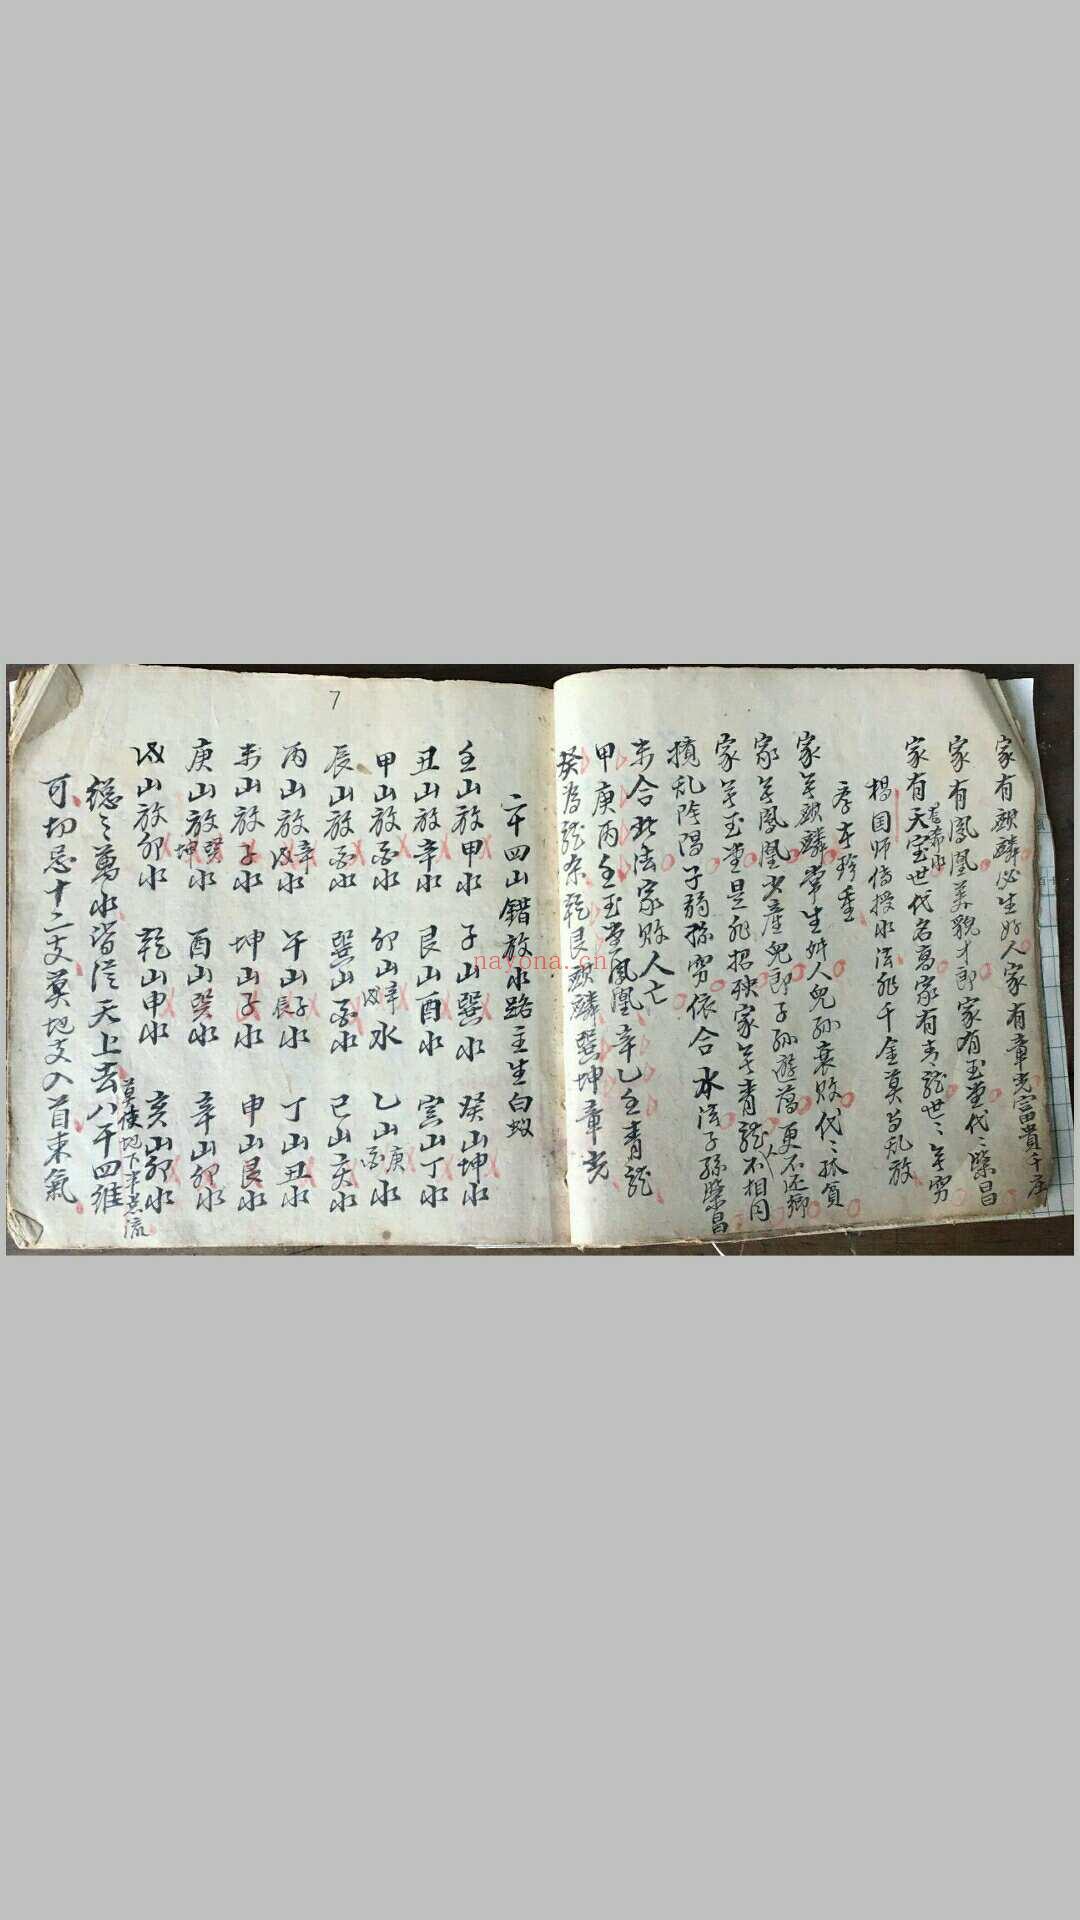 家有麒麟必生好人家有章光富貴千序
家有鳳凰美貌才郎家有玉堂代〻榮昌
家有天宝世代名髙家有青龍世〻無窮
楊国師傳授水法非千金莫与乱放
孝本珍重
家無麒麟常生奸人兒孫衰敗代〻孤貧
家無鳳凰少產兒郎子孫遊蕩更不还鄉
家無玉堂是非招殃家無青龍不相同
擯乱陰陽子弱孫窮依合水法子孫榮昌
未合此法家敗人亡
甲庚丙壬玉堂鳳凰辛乙壬青龍
癸為龍泉乾艮麒麟巽坤章光
二十四山錯放水路主生白蚁
壬山放甲水 子山巽水 癸山坤水
丑山放辛水 艮山酉水 寅山丁水
甲山放丙水 卯山辛戌水 乙山庚丙水
辰山放丙水 巽山丙水 巳山亥水
丙山放辛戌水 午山子辰水 丁山丑水
未山放子水 坤山子水 申山艮水
庚山放癸坤水 酉山癸水 辛山卯水
戌山放卯水 乾山申水 亥山卯水
莫使地下半点流
緫之萬水皆從天上去八干四維
可切忌十二支莫地支入首来氣
7
nayona.cn